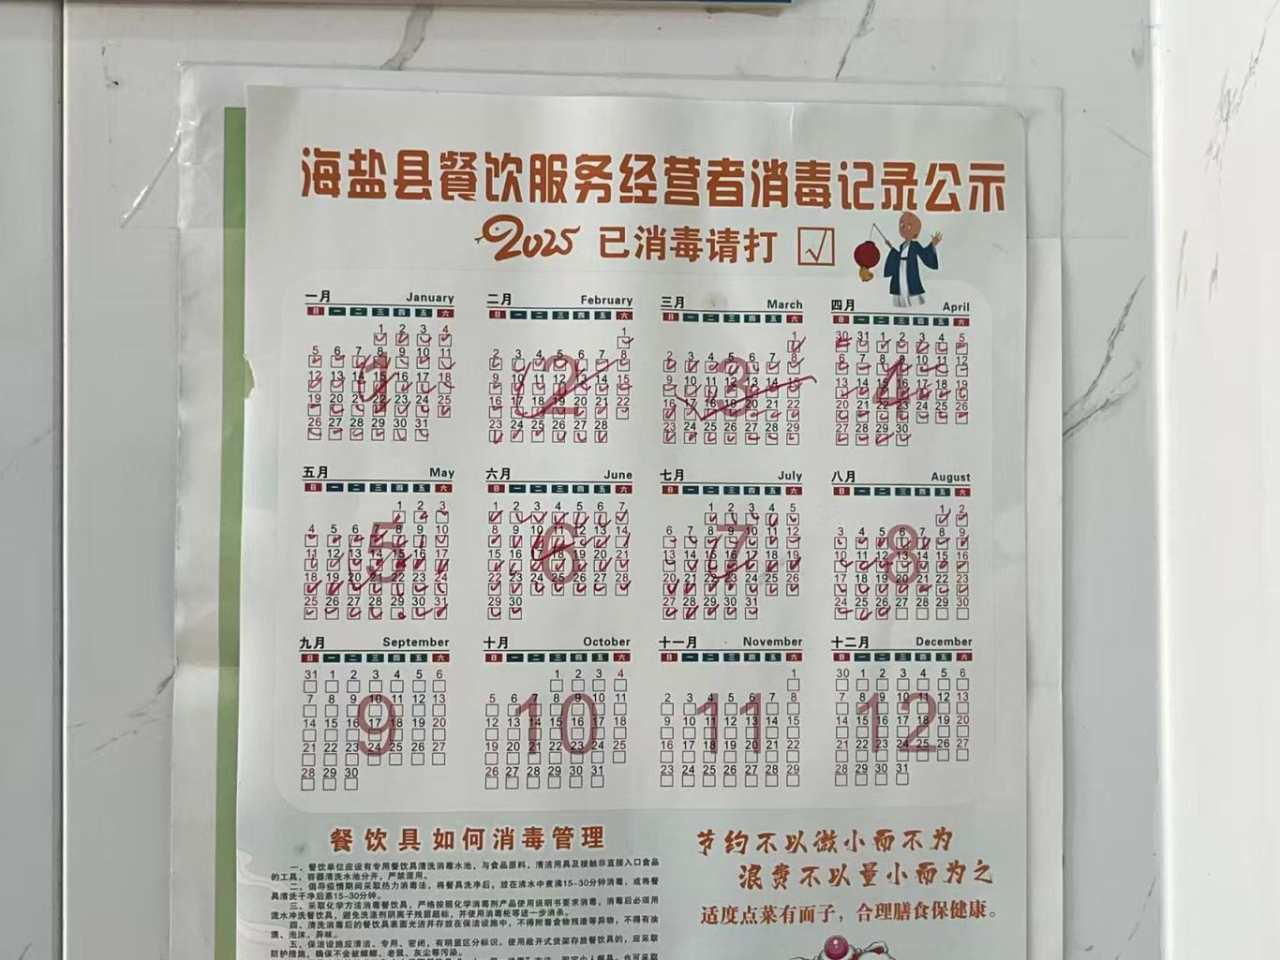 海盐县餐饮服务经营者消毒记录公示
2025 已消毒请打 √
一月 January
日 一 二 三 四 五 六
1 2 3 4
5 6 7 8 9 10 11
12 13 14 15 16 17 18
19 20 21 22 23 24 25
26 27 28 29 30 31
1
二月 February
日 一 二 三 四 五 六
1
2 3 4 5 6 7 8
9 10 11 12 13 14 15
16 17 18 19 20 21 22
23 24 25 26 27 28
2
三月 March
日 一 二 三 四 五 六
1
2 3 4 5 6 7 8
9 10 11 12 13 14 15
16 17 18 19 20 21 22
23 24 25 26 27 28 29
3
四月 April
日 一 二 三 四 五 六
30 31 1 2 3 4 5
6 7 8 9 10 11 12
13 14 15 16 17 18 19
20 21 22 23 24 25 26
27 28 29 30
4
五月 May
日 一 二 三 四 五 六
1 2 3
4 5 6 7 8 9 10
11 12 13 14 15 16 17
18 19 20 21 22 23 24
25 26 27 28 29 30 31
5
六月 June
日 一 二 三 四 五 六
1 2 3 4 5 6 7
8 9 10 11 12 13 14
15 16 17 18 19 20 21
22 23 24 25 26 27 28
29 30
6
七月 July
日 一 二 三 四 五 六
1 2 3 4 5
6 7 8 9 10 11 12
13 14 15 16 17 18 19
20 21 22 23 24 25 26
27 28 29 30 31
7
八月 August
日 一 二 三 四 五 六
1 2
3 4 5 6 7 8 9
10 11 12 13 14 15 16
17 18 19 20 21 22 23
24 25 26 27 28 29 30
8
九月 September
日 一 二 三 四 五 六
31 1 2 3 4 5 6
7 8 9 10 11 12 13
14 15 16 17 18 19 20
21 22 23 24 25 26 27
28 29 30
9
十月 October
日 一 二 三 四 五 六
1 2 3 4
5 6 7 8 9 10 11
12 13 14 15 16 17 18
19 20 21 22 23 24 25
26 27 28 29 30 31
10
十一月 November
日 一 二 三 四 五 六
1
2 3 4 5 6 7 8
9 10 11 12 13 14 15
16 17 18 19 20 21 22
23 24 25 26 27 28 29
11
十二月 December
日 一 二 三 四 五 六
30 1 2 3 4 5 6
7 8 9 10 11 12 13
14 15 16 17 18 19 20
21 22 23 24 25 26 27
28 29 30 31
12
餐饮具如何消毒管理
一、餐饮单位应设有专用餐饮具清洗消毒水池，与食品原料、清洁用具及接触非直接入口食品
的工具、容器清洗水池分开，严禁混用。
二、倡导疫情期间采取热力消毒法，将餐具洗净后，放在沸水中煮沸15-30分钟消毒，或将餐
具清洗干净后蒸15-30分钟。
三、采取化学方法消毒餐饮具，严格按照化学消毒剂产品使用说明书要求消毒，消毒后必须用
流水冲洗餐饮具，避免洗涤剂阴离子残留超标，并使用消毒柜等进一步消杀。
四、清洗消毒后的餐饮具表面光洁并存放在保洁设施中，不得附着食物残渣等异物，不得有油
渍、泡沫、异味。
五、保洁设施应清洁、专用、密闭，有明显区分标识，使用敞开式货架存放餐饮具的，应采取
防护措施，确保不会被蟑螂、老鼠、灰尘等污染。
节约不以微小而不为
浪费不以量小而为之
适度点菜有面子，合理膳食保健康。